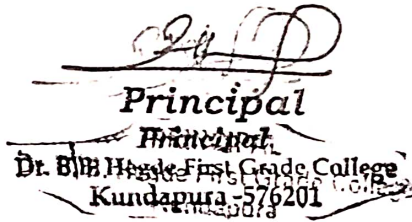 Principal
Principal
Dr. B.B. Hegde First Grade College
Kundapura -576201